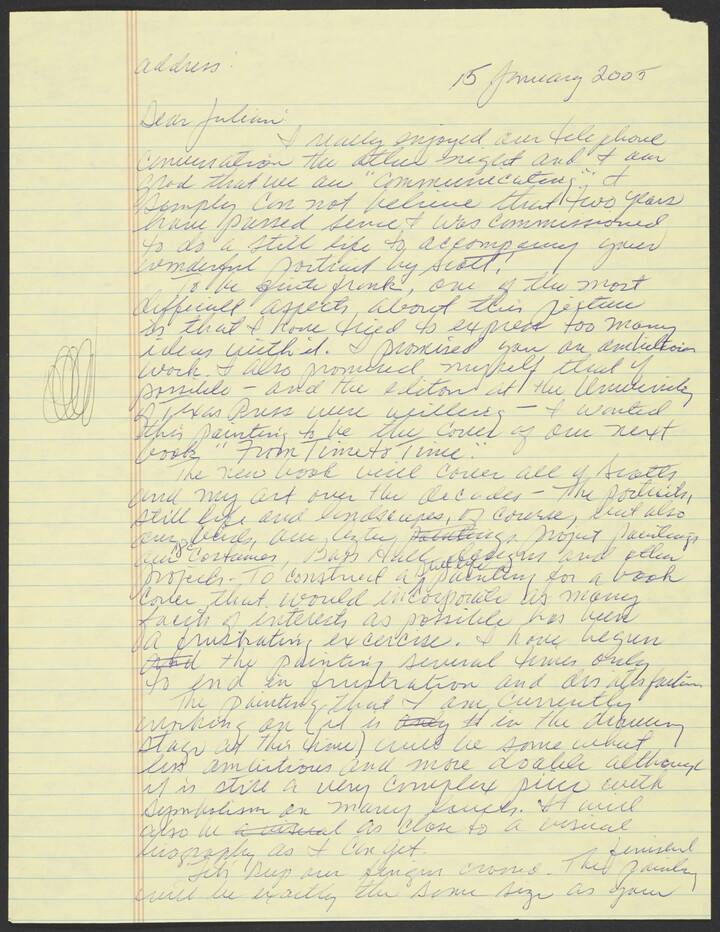 address:
15 January 2005
Dear Julian:
I really enjoyed our telephone
conversation the other night and I am
glad that we are "communicating". I
simply can not believe that two years
have passed since I was commissioned
to do a still life to accompany your
wonderful portrait by Scott!
To be quite frank, one of the most
difficult aspects about this picture
is that I have tried to express too many
ideas with it. I promised you an ambitious
work. I also promised myself that if
possible – and the editors at the University
of Texas Press were willing – I wanted
this painting to be the cover of our next
book "From Time to Time."
The new book will cover all of Scott's
and my art over the decades – The portraits,
still life and landscapes, of course, but also
our birds, our Aztec paintings project paintings
our costumes, Bass Hall designs and other
projects – To construct a painting for a book
cover that would incorporate as many
facets of interests as possible has been
a frustrating excercise. I have begun
and the painting several times only
to end in frustration and dissatisfaction
The painting that I am currently
working on (it is only in the drawing
stage at this time) will be some what
less ambitious and more doable although
it is still a very complex piece with
symbolism on many levels. It will
also be a visual as close to a visual
biography as I can get.
Let's keep our fingers crossed. The finished painting
will be exactly the same size as your